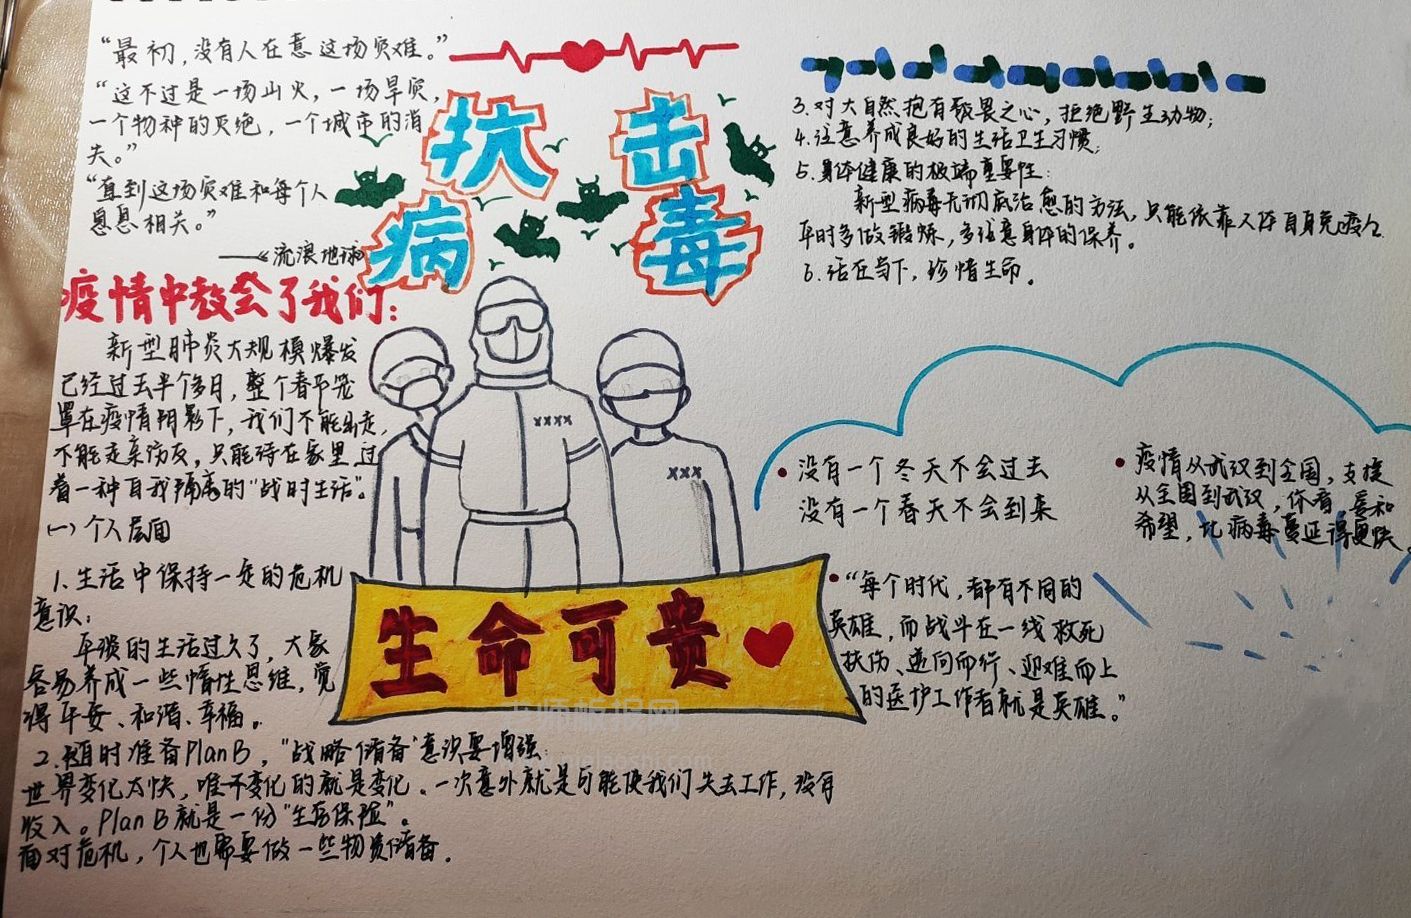 “最初，没有人在意这场灾难。”
“这不过是一场山火，一场旱灾，
一个物种的灭绝，一个城市的消
失。”
“直到这场灾难和每个人
息息相关。”
——《流浪地球
抗击
病毒
疫情中教会了我们：
新型肺炎大规模爆发
已经过去半个多月，整个春节笼
罩在疫情阴影下，我们不能出走，
不能走亲访友，只能待在家里，过
着一种自我隔离的“战时生活”。
(一) 个人层面
1. 生活中保持一定的危机
意识：
平淡的生活过久了，大家
容易养成一些惰性思维，觉
得平安、和谐、幸福。
2. 随时准备Plan B，“战略储备”意识要增强：
世界变化太快，唯不变化的就是变化。一次意外就是可能使我们失去工作，没有
收入。Plan B 就是一份“生活保险”。
面对危机，个人也需要做一些物资储备。
3. 对大自然抱有敬畏之心，拒绝野生动物；
4. 注意养成良好的生活卫生习惯；
5. 身体健康的极端重要性：
新型病毒无彻底治愈的方法，只能依靠人体自身免疫力
平时多做锻炼，多注意身体的保养。
6. 活在当下，珍惜生命。
xxxx
xxx
没有一个冬天不会过去
没有一个春天不会到来
疫情从武汉到全国，支援
从全国到武汉，你看，爱和
希望，比病毒蔓延得更快。
“每个时代，都有不同的
英雄，而战斗在一线救死
扶伤、逆向而行、迎难而上
的医护工作者就是英雄。”
生命可贵
老师板报网